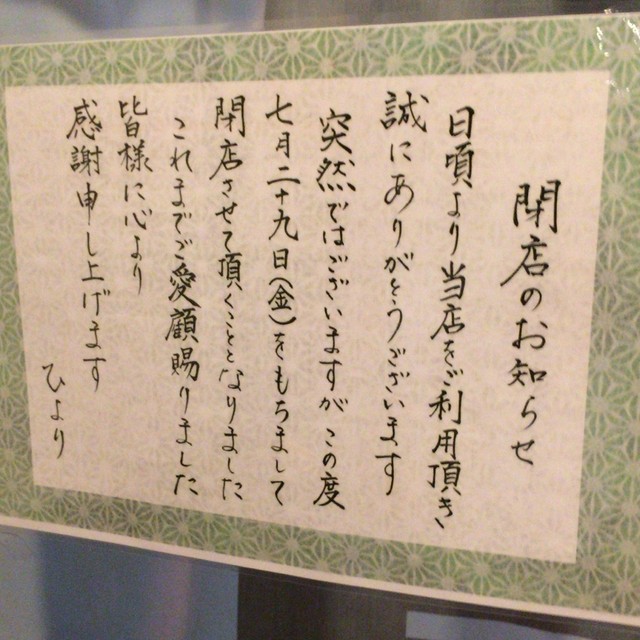 閉店のお知らせ
日頃より当店をご利用頂き
誠にありがとうございます
突然ではございますがこの度
七月二十九日(金)をもちまして
閉店させて頂くこととなりました
これまでご愛顧賜りました
皆様に心より
感謝申し上げます
ひより